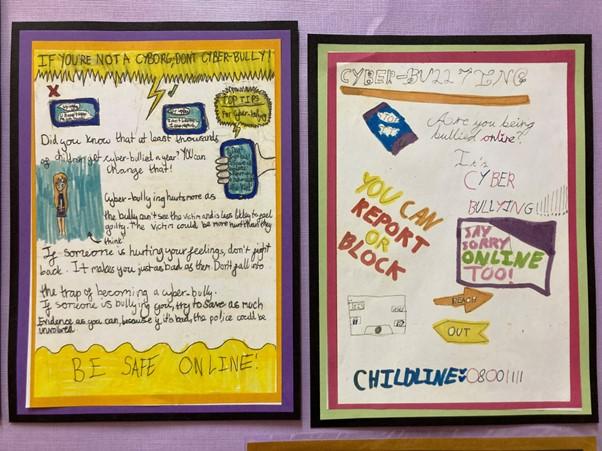 IF YOU'RE NOT A CYBORG, DONT CYBER-BULLY!
TOP TIPS
For cyber-bullying
Did you know that at least thousands
of children get cyber-bullied a year? YOU can
change that!
Cyber-bullying hurts more as
the bully can't see the victim and is less likley to feel
guilty. The victim could be more hurt than they
think!
If someone is hurting your feelings, don't fight
back. It makes you just as bad as them. Don't fall into
the trap of becoming a cyber-bully.
If someone us bullying you, try to save as much
Evidence as you can, because if it's bad, the police could be
involved
BE SAFE ONLINE!
CYBER-BULLYING
Are you being
bullied online?
It's
CYBER
BULLYING!!!!!!!!
YOU CAN
REPORT
OR
BLOCK
SAY
SORRY
ONLINE
TOO!
REACH
OUT
CHILDLINE: 08001111